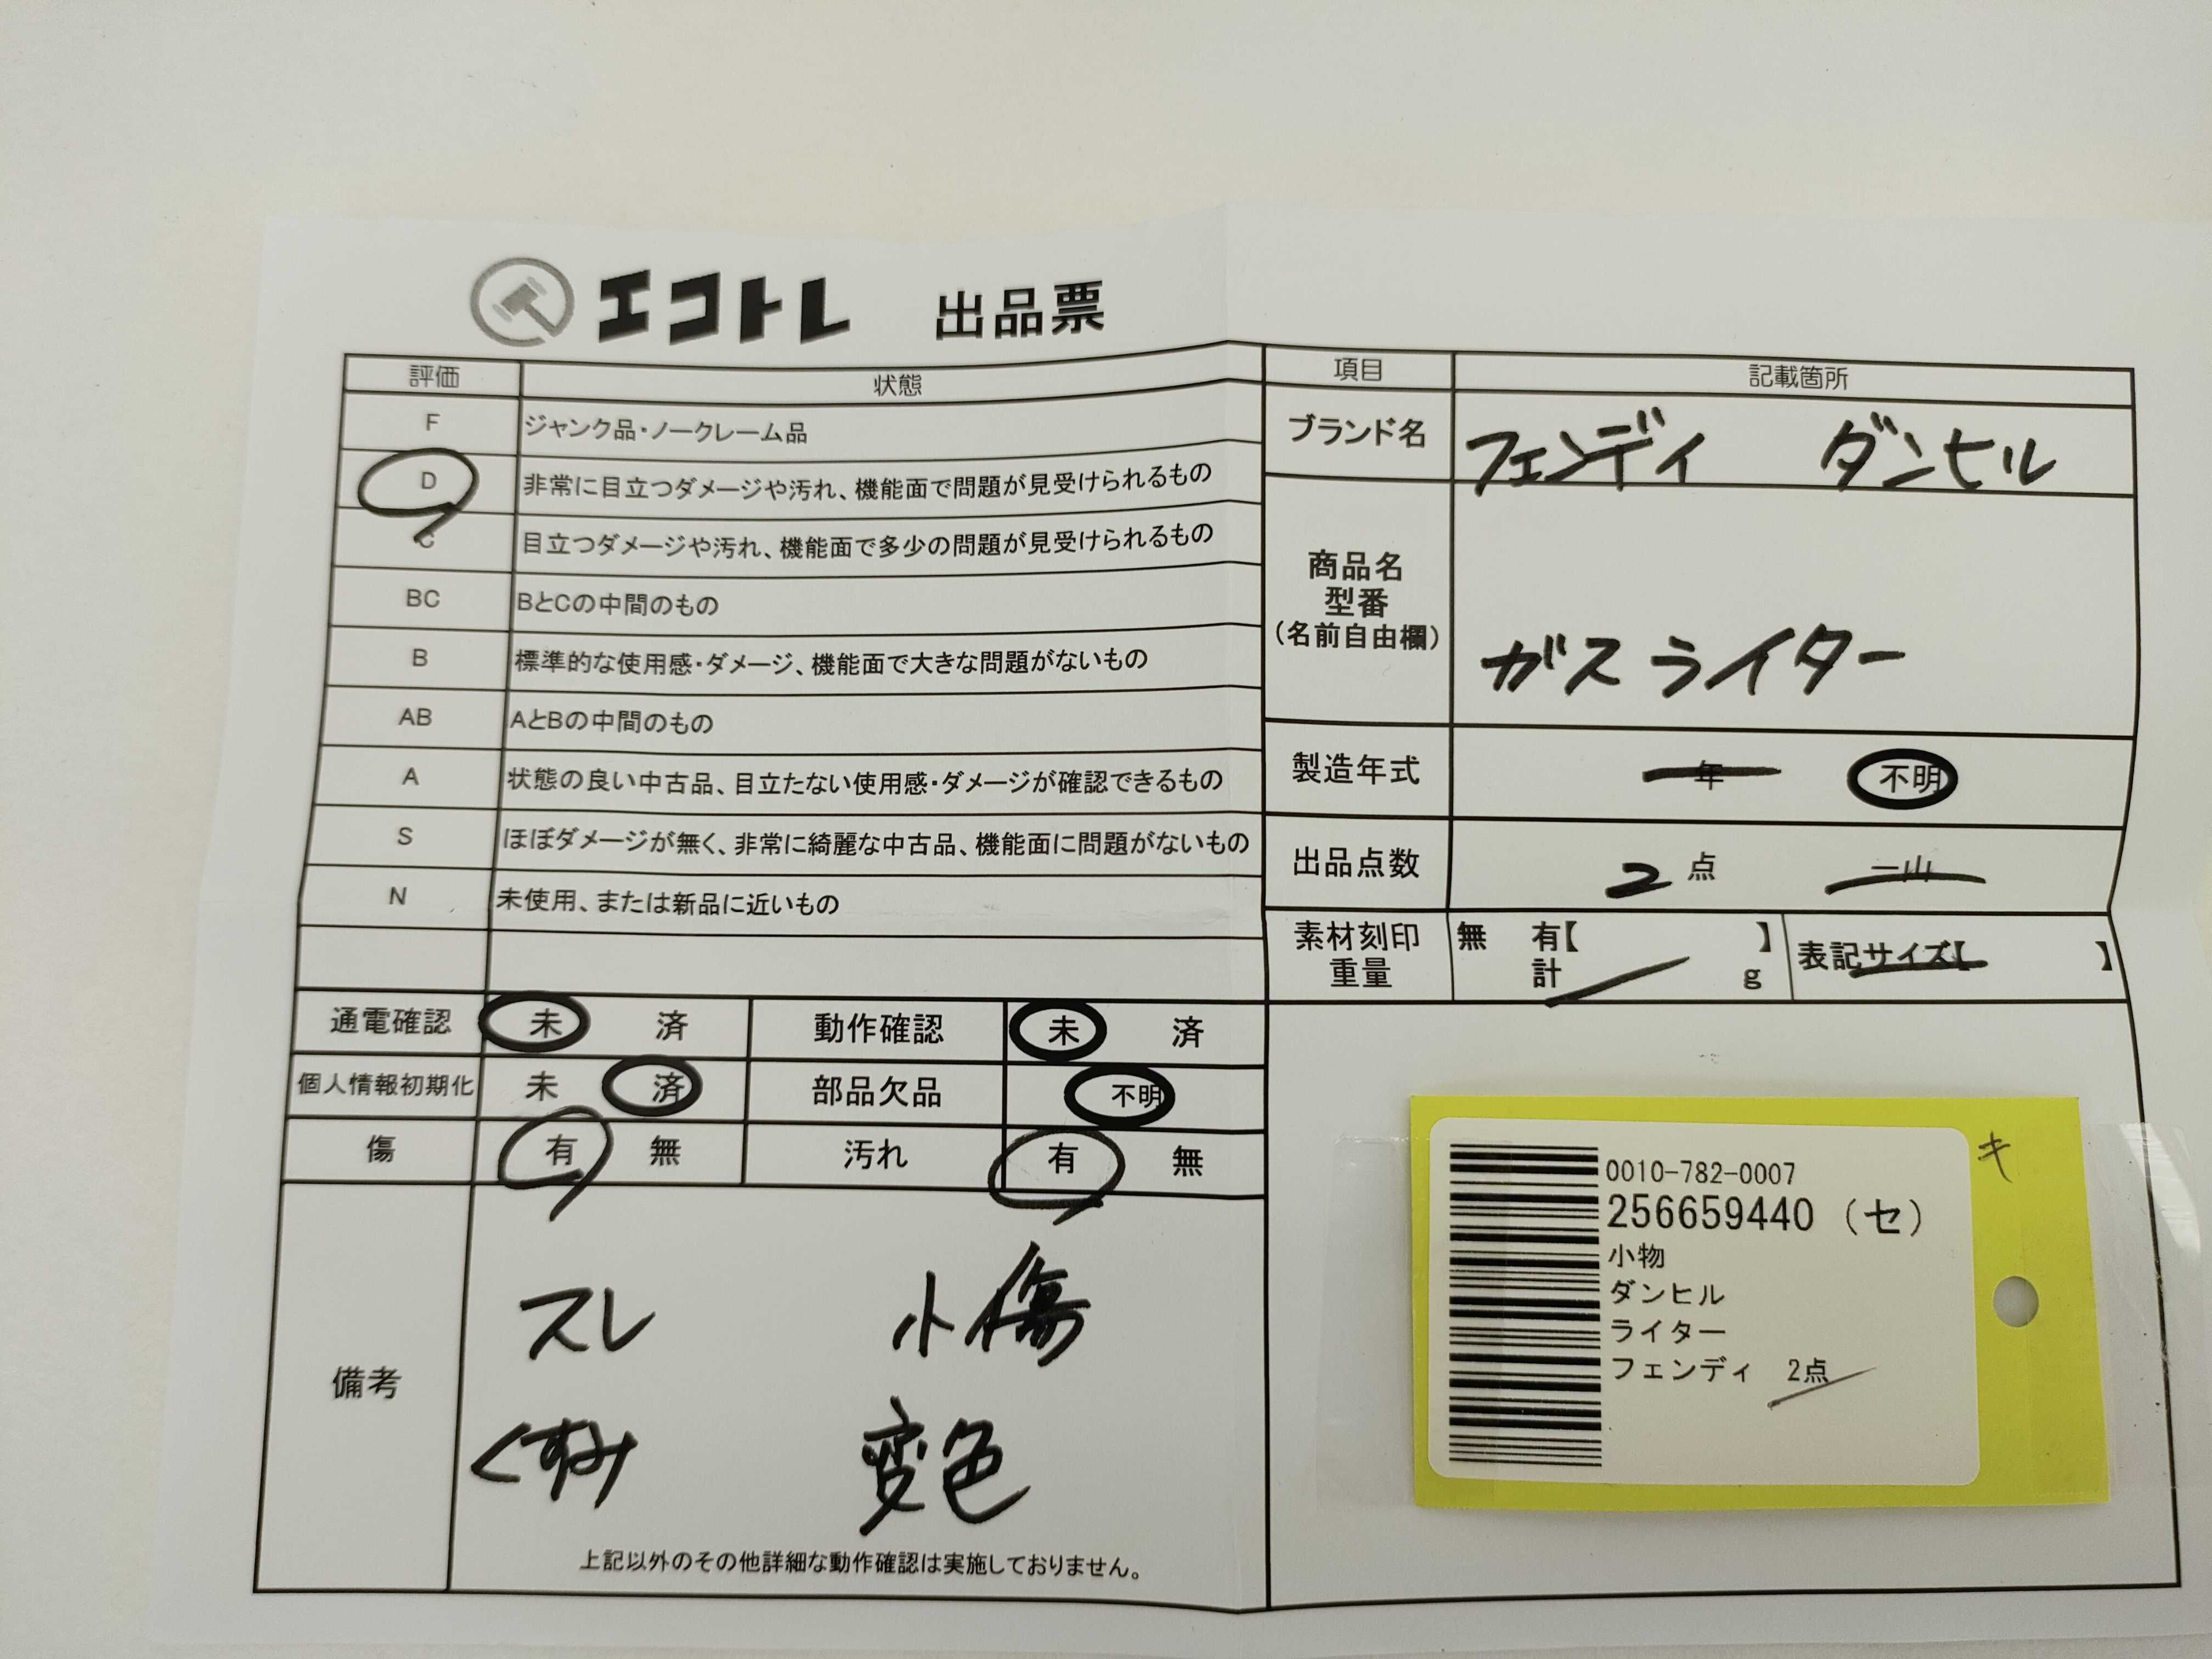 エコトレ 出品票
評価 状態
F ジャンク品・ノークレーム品
D 非常に目立つダメージや汚れ、機能面で問題が見受けられるもの
C 目立つダメージや汚れ、機能面で多少の問題が見受けられるもの
BC BとCの中間のもの
B 標準的な使用感・ダメージ、機能面で大きな問題がないもの
AB AとBの中間のもの
A 状態の良い中古品、目立たない使用感・ダメージが確認できるもの
S ほぼダメージが無く、非常に綺麗な中古品、機能面に問題がないもの
N 未使用、または新品に近いもの
通電確認 未 済 動作確認 未 済
個人情報初期化 未 済 部品欠品 不明
傷 有 無 汚れ 有 無
備考
スレ 小傷
くすみ 変色
上記以外のその他詳細な動作確認は実施しておりません。
項目 記載箇所
ブランド名 フェンディ ダンヒル
商品名
型番
(名前自由欄)
ガスライター
製造年式 年 不明
出品点数 2 点 一山
素材刻印 無 有【 】
重量 計 g
表記サイズ【 】
0010-782-0007
256659440 (セ)
小物
ダンヒル
ライター
フェンディ 2点
キ